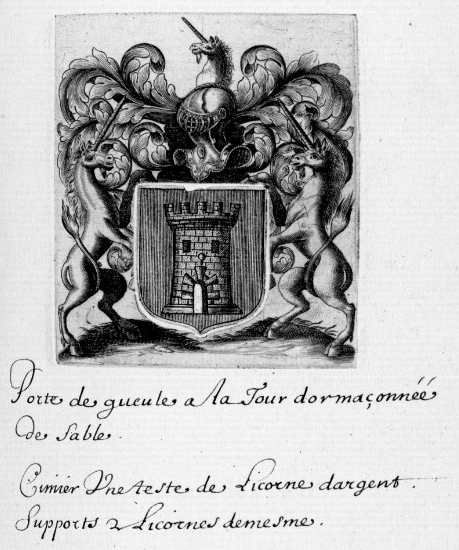 Porte de gueule a la Tour dor maçonnéé
de sable.
Cimier Une teste de Licorne dargent.
Supports 2 Licornes demesme.